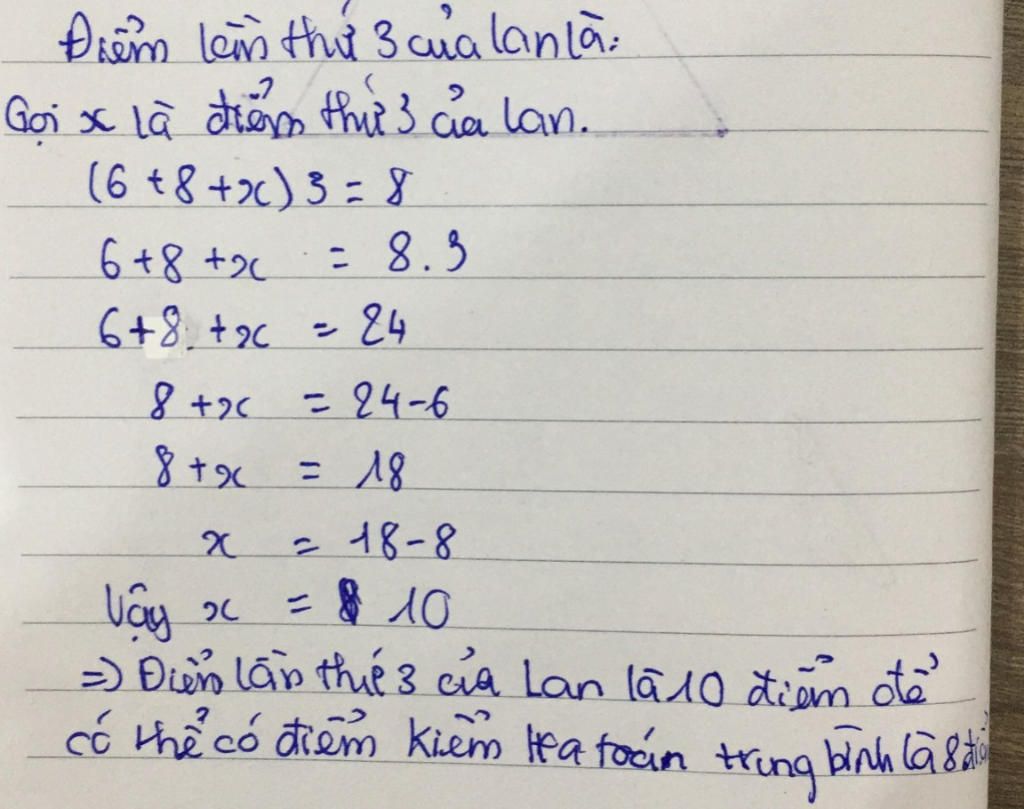 Điểm lần thứ 3 của lan là:
Gọi x là điểm thứ 3 của lan.
(6 + 8 + x) 3 = 8
6 + 8 + x = 8 . 3
6 + 8 + x = 24
8 + x = 24 - 6
8 + x = 18
x = 18 - 8
Vậy x = 10
=> Điểm lần thứ 3 của Lan là 10 điểm để
có thể có điểm kiểm tra toán trung bình là 8